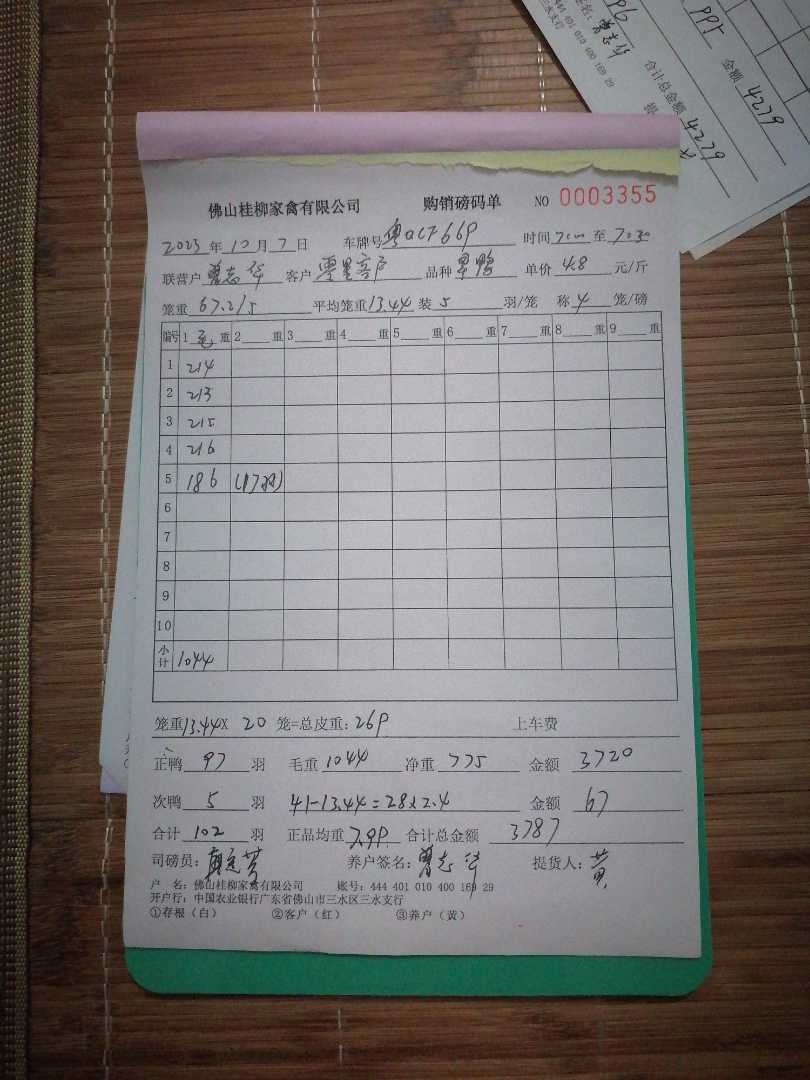 金额 4279
合计总金额 4279
401 010 400 169 29
佛山桂柳家禽有限公司 购销磅码单 NO 0003355
2023年10月7日 车牌号 时间 7:00 至 7:30
联营户 曾志华 客户 零星客户 品种 单价 4.8 元/斤
笼重 67.2/5 平均笼重 13.44 装 5 羽/笼 称 4 笼/磅
编号 1 毛 重 2 重 3 重 4 重 5 重 6 重 7 重 8 重 9 重
1 214
2 213
3 215
4 216
5 186 (17羽)
6
7
8
9
10
小计 1044
笼重 13.44 X 20 笼=总皮重: 269 上车费
正鸭 97 羽 毛重 1044 净重 775 金额 3720
次鸭 5 羽 41-13.44=28x2.4 金额 67
合计 102 羽 正品均重 7.99 合计总金额 3787
司磅员: 养户签名: 曾志华 提货人: 黄
户 名: 佛山桂柳家禽有限公司 账号: 444 401 010 400 169 29
开户行: 中国农业银行广东省佛山市三水区三水支行
①存根(白) ②客户(红) ③养户(黄)